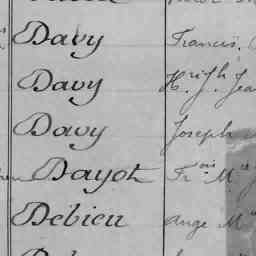 Davy Francis.
Davy H.
Davy Joseph
Dayot Frois M.
Debien Ange M